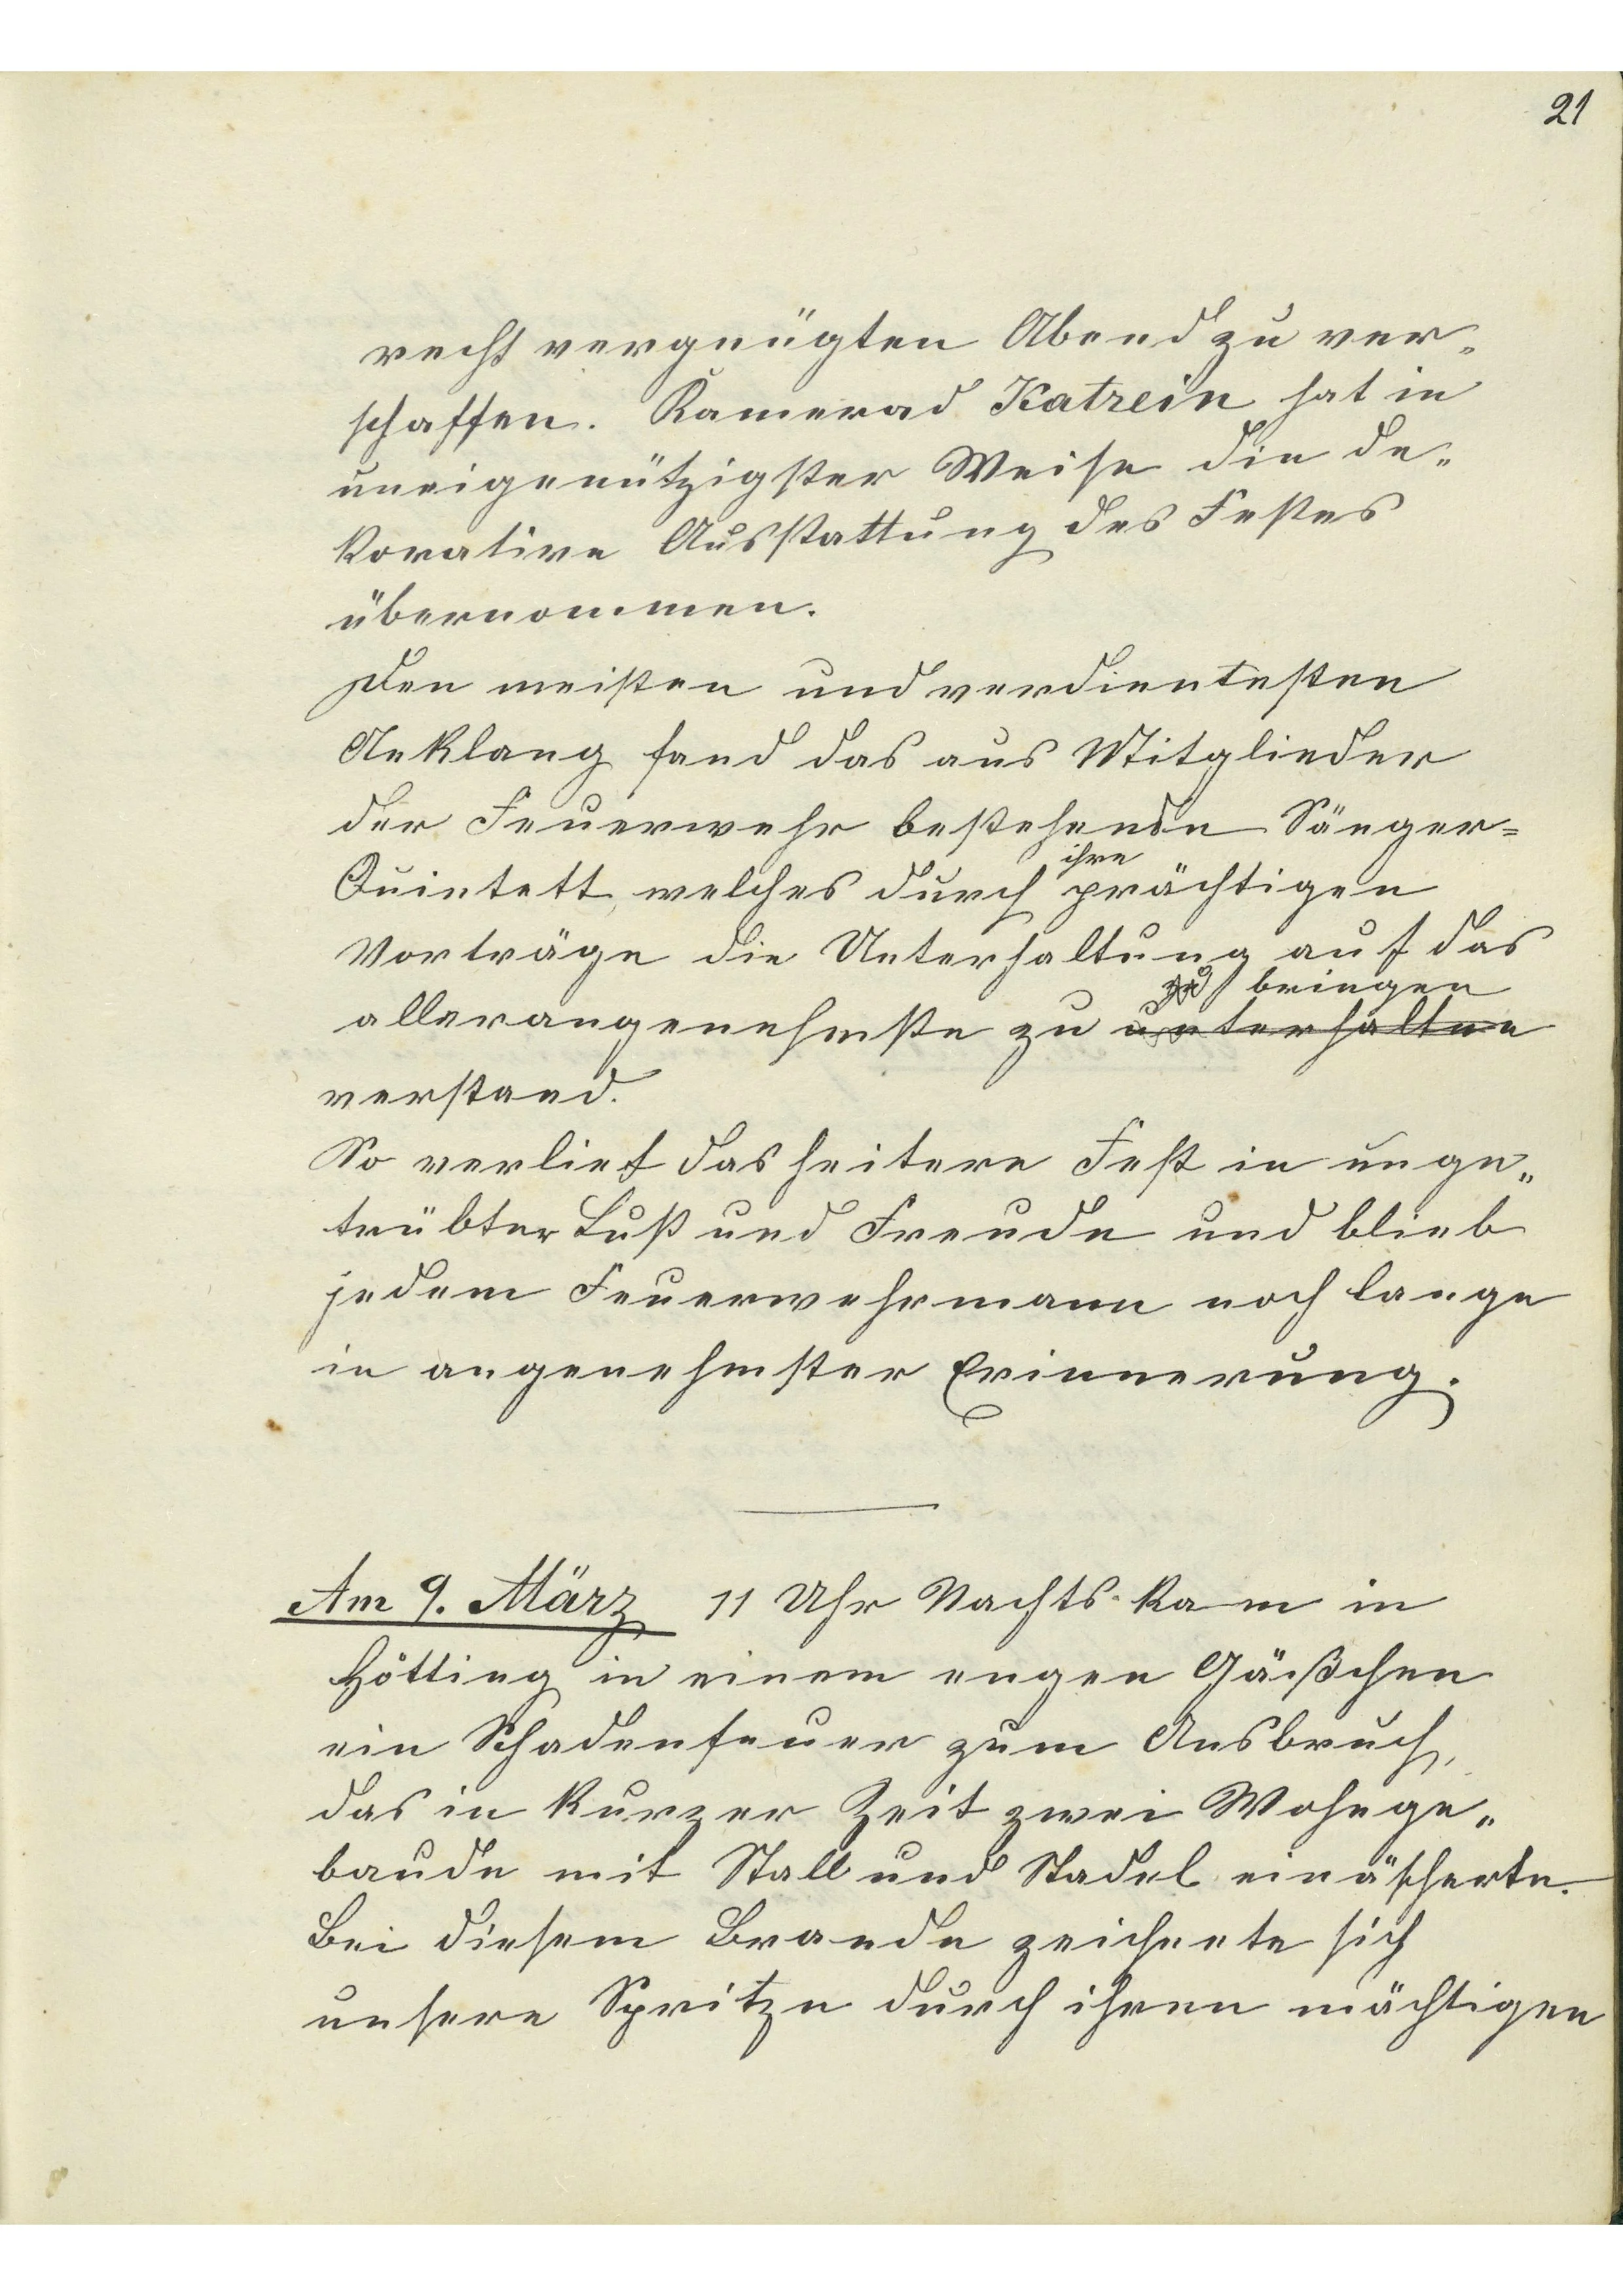 21
recht vergnügten Abend zu ver„
schaffen. Kamerad Katrein hat in
uneigenützigster Weise die de„
korative Ausstattung des Festes
übernommen.
Den meisten und verdientesten
Anklang fand das aus Mitglieder
der Feuerwehr bestehende Sänger=
ihre
Quintett, welches durch prächtigen
Vorträge die Unterhaltung auf das
zu bringen
allerangenehmste zu unterhalten
verstand.
So verlief das heitere Fest in unge„
trübter Lust und Freude und blieb
jedem Feuerwehrmann noch lange
in angenehmster Erinnerung.
Am 9. März 11 Uhr Nachts kam in
Hötting in einem engen Gäßchen
ein Schadenfeuer zum Ausbruch,
das in kurzer Zeit zwei Wohnge„
baude mit Stall und Stadel einäscherte.
Bei diesem Brande zeichnete sich
unsere Spritze durch ihren mächtigen